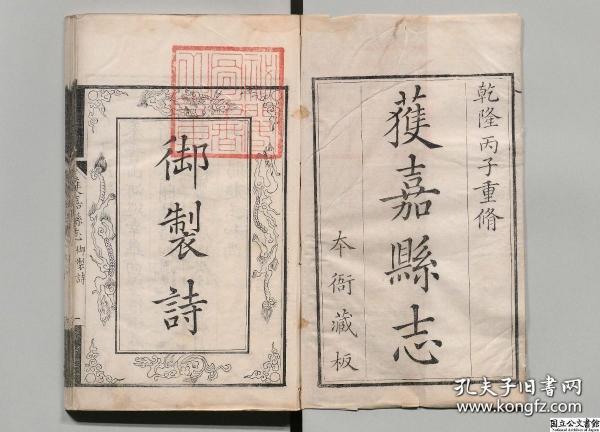 乾隆丙子重脩
蒦嘉縣志
本衙藏板
御製詩
孔夫子旧书网
www.kongfz.com
国立公文書館
National Archives of Japan